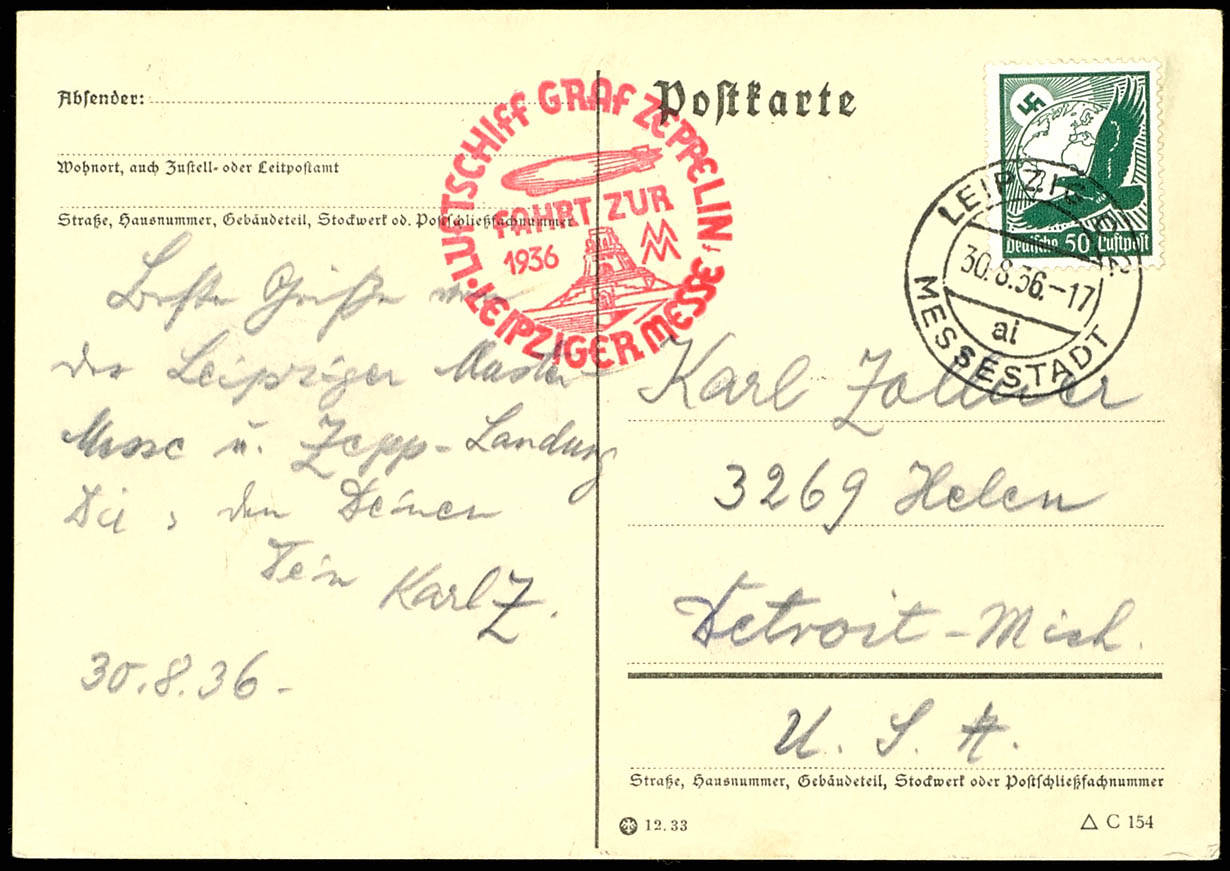 Absender:
Wohnort, auch Zustell- oder Leitpostamt
Straße, Hausnummer, Gebäudeteil, Stockwerk od. Postschließfachnummer
Beste Grüße von
der Leipziger Muster-
Messe u. Zepp-Landung
Dir, den Deinen
Dein Karl Z.
30.8.36-
LUFTSCHIFF GRAF ZEPPELIN
FAHRT ZUR
1936
MM
LEIPZIGER MESSE
f
Postkarte
Deutsche 50 Luftpost
LEIPZIG
30.8.36.-17
ai
MESSESTADT
Karl
3269 Helen
Detroit - Mich.
U. S. A.
Straße, Hausnummer, Gebäudeteil, Stockwerk oder Postschließfachnummer
12.33
△ C 154